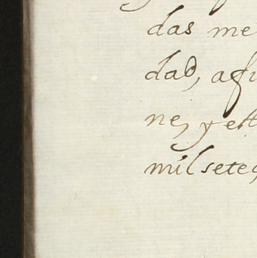 das me
dad, afi
ne, y est
milsetec